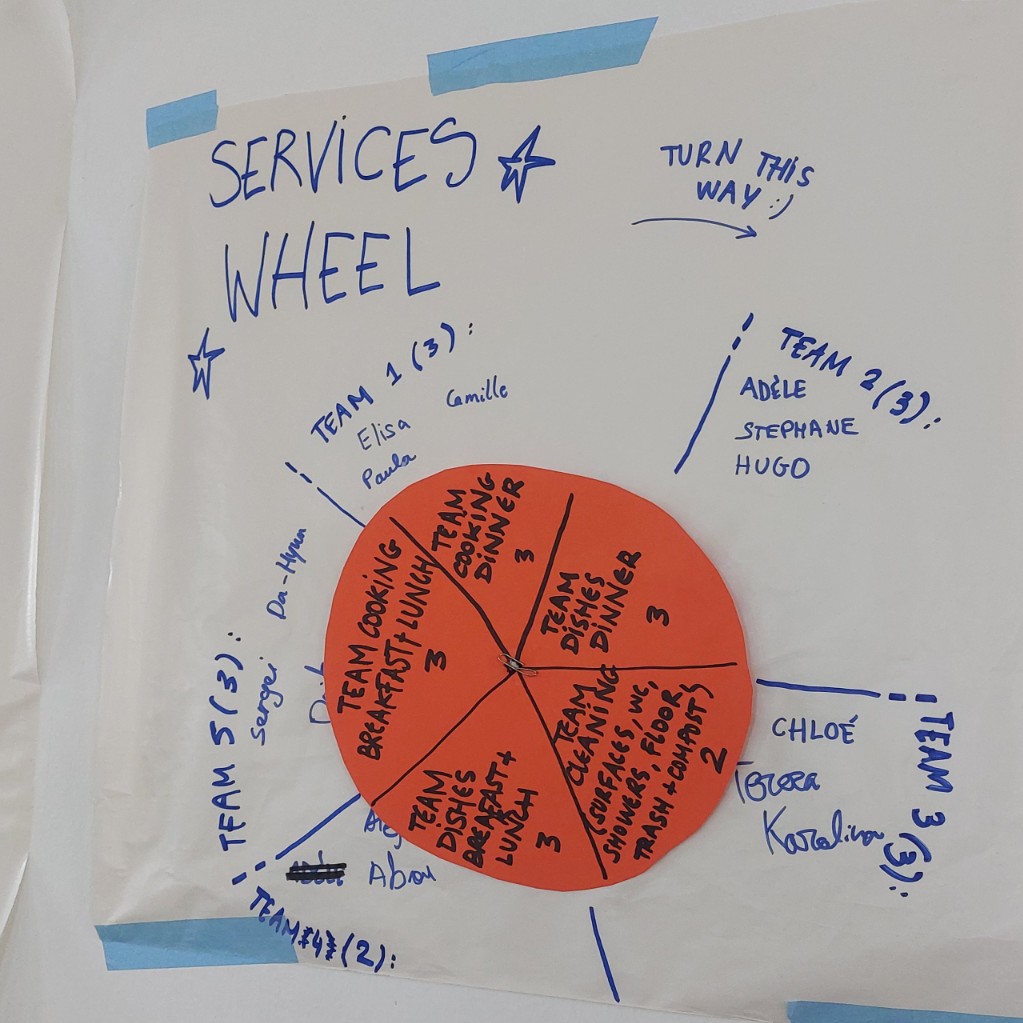 SERVICES
WHEEL
TURN THIS
WAY :)
TEAM 1 (3):
Elisa
Camille
Paula
TEAM 2 (3):
ADÈLE
STEPHANE
HUGO
TEAM 3 (3):
CHLOÉ
Tereza
Karolina
TEAM 4 (2):
Abou
TEAM 5 (3):
Sergei
Da-Hyun
TEAM
COOKING
DINNER
3
TEAM
DISHES
DINNER
3
TEAM
CLEANING
(SURFACES, WC,
SHOWERS, FLOOR,
TRASH + COMPOST)
2
TEAM
DISHES
BREAKFAST+
LUNCH
3
TEAM COOKING
BREAKFAST+ LUNCH
3